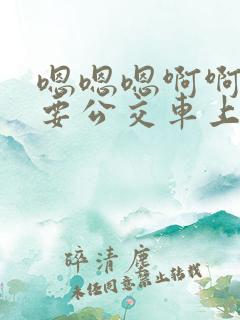 嗯嗯嗯啊啊
要公交车上
醉清尘
未经同意禁止转载